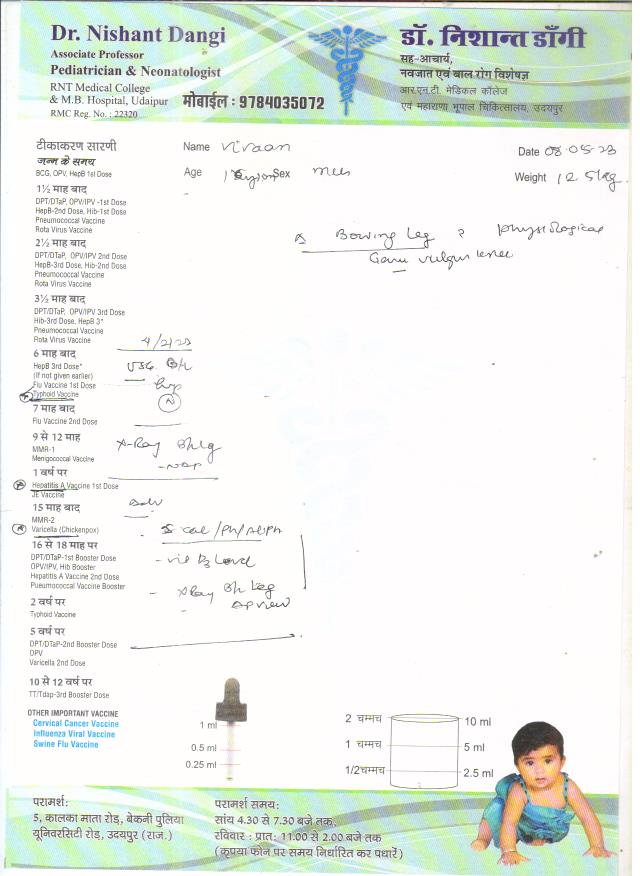 Dr. Nishant Dangi
Associate Professor
Pediatrician & Neonatologist
RNT Medical College
& M.B. Hospital, Udaipur
RMC Reg. No. : 22320
मोबाईल : 9784035072
डॉ. निशान्त डाँगी
सह-आचार्य,
नवजात एवं बाल रोग विशेषज्ञ
आर.एन.टी. मेडिकल कॉलेज
एवं महाराणा भूपाल चिकित्सालय, उदयपुर
Name Vivaan
Date 08.05.23
Age Sex
Weight
Bowing Leg ? Physiological
Genu valgum knee
टीकाकरण सारणी
जन्म के समय
BCG, OPV, HepB 1st Dose
1½ माह बाद
DPT/DTaP, OPV/IPV -1st Dose
HepB-2nd Dose, Hib-1st Dose
Pneumococcal Vaccine
Rota Virus Vaccine
2½ माह बाद
DPT/DTaP, OPV/IPV 2nd Dose
HepB-3rd Dose, Hib-2nd Dose
Pneumococcal Vaccine
Rota Virus Vaccine
3½ माह बाद
DPT/DTaP, OPV/IPV 3rd Dose
Hib-3rd Dose, HepB 3*
Pneumococcal Vaccine
Rota Virus Vaccine
6 माह बाद
HepB 3rd Dose*
(If not given earlier)
Flu Vaccine 1st Dose
Typhoid Vaccine
7 माह बाद
Flu Vaccine 2nd Dose
9 से 12 माह
MMR-1
Menigococcal Vaccine
1 वर्ष पर
Hepatitis A Vaccine 1st Dose
JE Vaccine
15 माह बाद
MMR-2
Varicella (Chickenpox)
16 से 18 माह पर
DPT/DTaP-1st Booster Dose
OPV/IPV, Hib Booster
Hepatitis A Vaccine 2nd Dose
Pueumococcal Vaccine Booster
2 वर्ष पर
Typhoid Vaccine
5 वर्ष पर
DPT/DTaP-2nd Booster Dose
OPV
Varicella 2nd Dose
10 से 12 वर्ष पर
TT/Tdap-3rd Booster Dose
OTHER IMPORTANT VACCINE
Cervical Cancer Vaccine
Influenza Viral Vaccine
Swine Flu Vaccine
4/2/23
USG B/L
hip
N
X-Ray B/L leg
Adv
S cal/PH/ALPH
- vit D3 Level
- XRay B/L Leg
AP view
1 ml
0.5 ml
0.25 ml
2 चम्मच 10 ml
1 चम्मच 5 ml
1/2चम्मच 2.5 ml
परामर्श:
5, कालका माता रोड़, बेकनी पुलिया
यूनिवरसिटी रोड़, उदयपुर (राज.)
परामर्श समय:
सांय 4.30 से 7.30 बजे तक,
रविवार : प्रात: 11.00 से 2.00 बजे तक
(कृपया फोन पर समय निर्धारित कर पधारें)